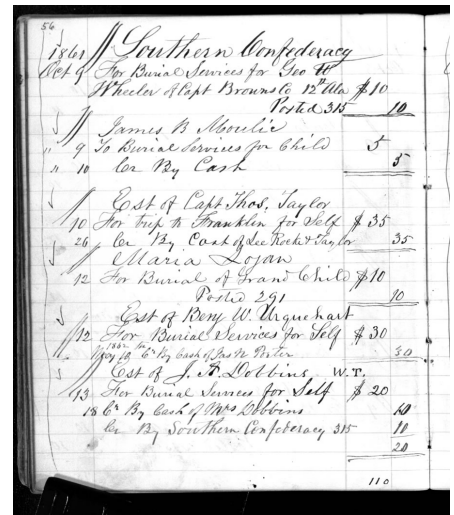 56
1861 Southern Confederacy
Oct 9 For Burial Services for Geo W
Wheeler of Capt Browns Co 12th Ala $10
Posted 315 10
James B Moulie
" 9 To Burial Services for Child 5
" 10 Cr By Cash 5
Est of Capt Thos. Taylor
10 For trip to Franklin for Self $35
26 Cr By Cash of Lee Rocke & Taylor 35
Maria Logan
12 For Burial of Grand Child $10
Posted 291 10
Est of Benj W. Urquehart
12 For Burial Services for Self $30
1862 Cr By Cash of Jas N Porter 30
Est of J. A. Dobbins W.T.
13 For Burial Services for Self $20
18 Cr By Cash of Mrs Dobbins 10
Cr By Southern Confederacy 315 10
20
110